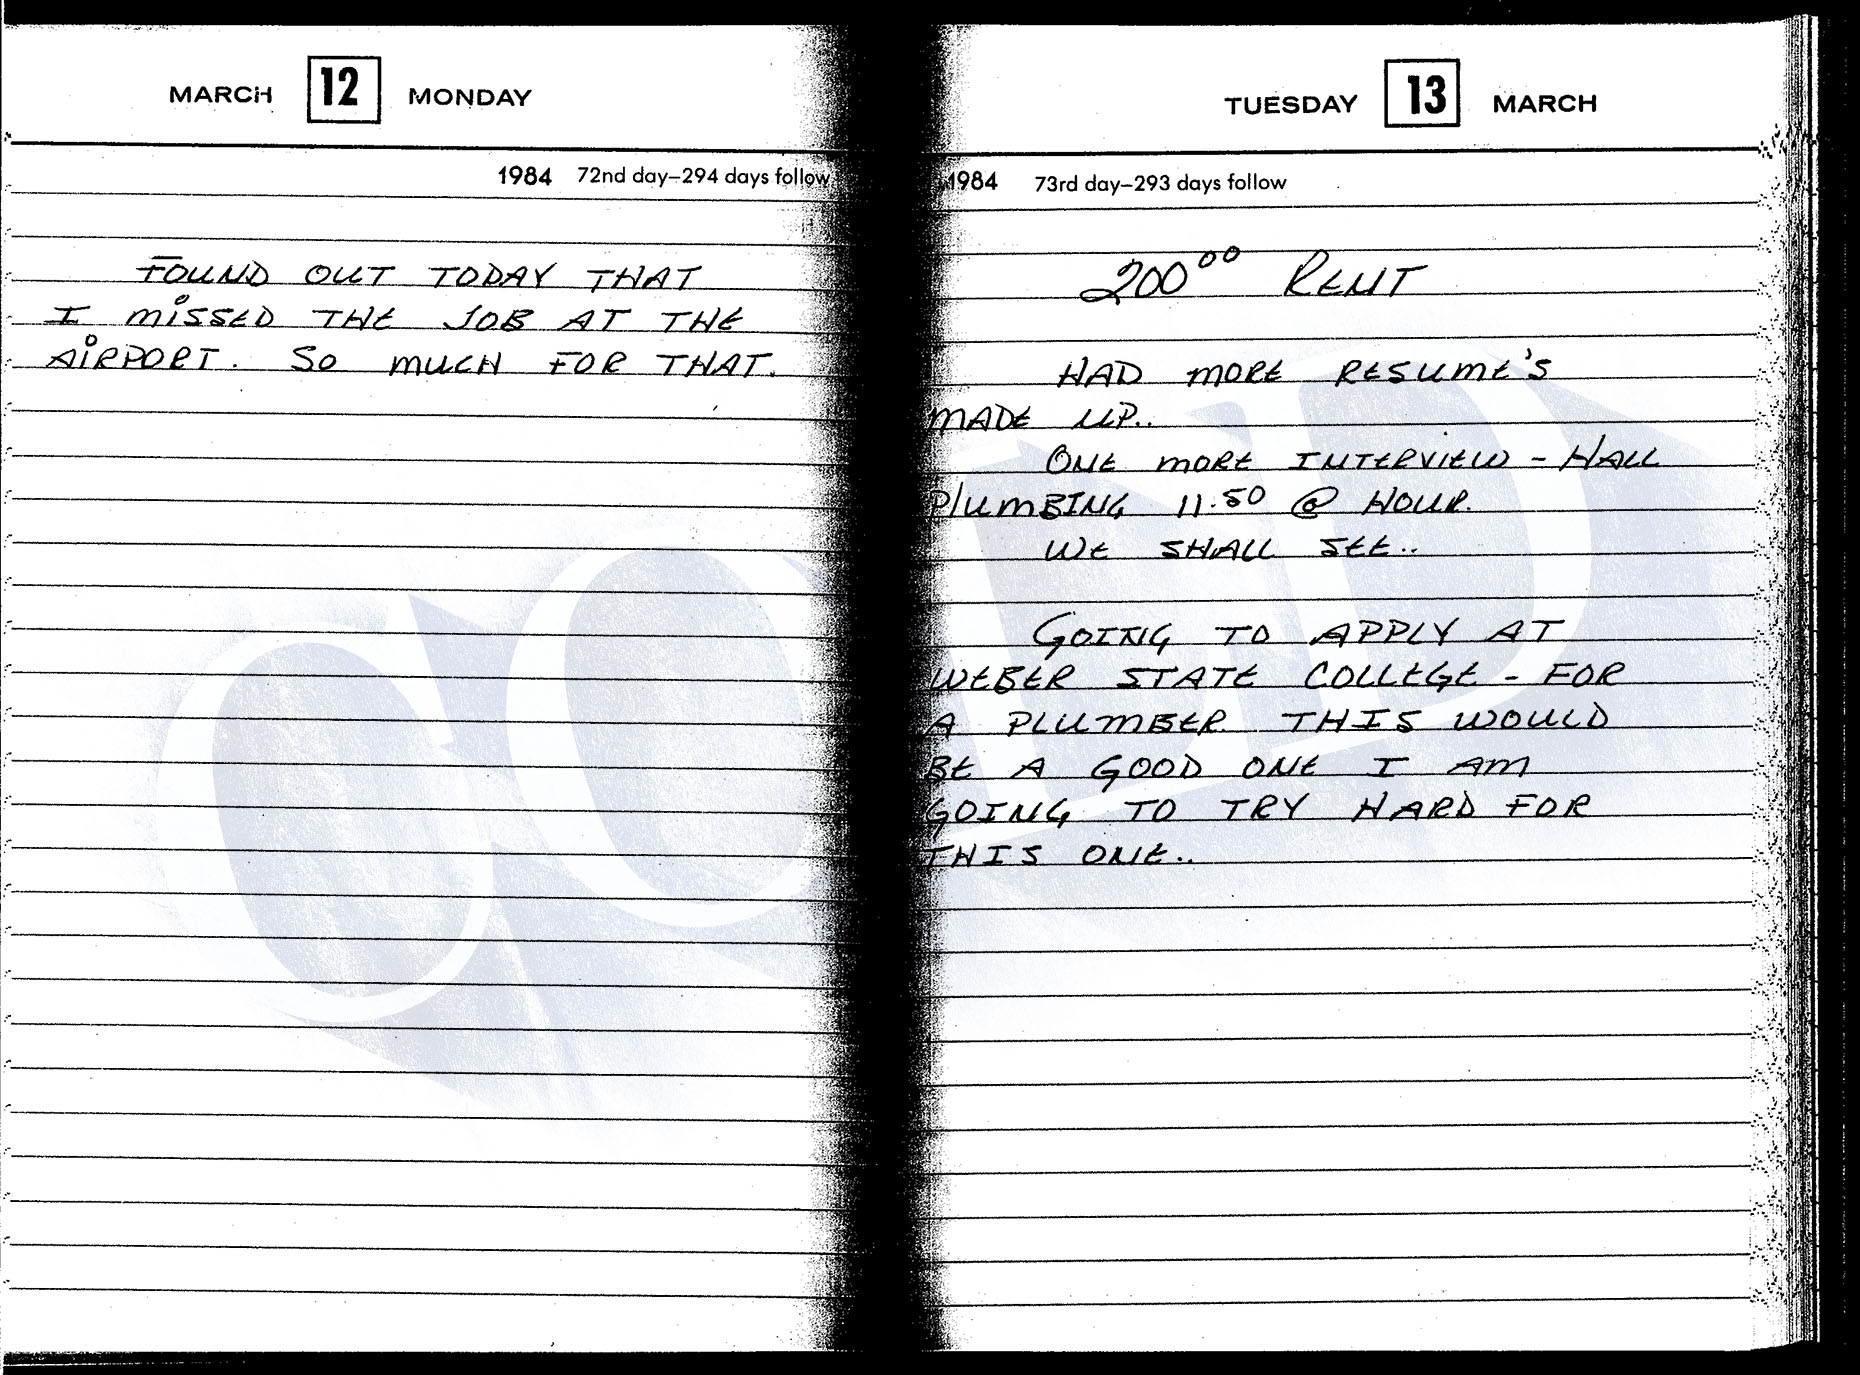 MARCH 12 MONDAY
1984 72nd day–294 days follow
FOUND OUT TODAY THAT
I MISSED THE JOB AT THE
AIRPORT. SO MUCH FOR THAT.
TUESDAY 13 MARCH
1984 73rd day–293 days follow
200.00 RENT
HAD MORE RESUME'S
MADE UP..
ONE MORE INTERVIEW - HALL
PLUMBING 11.50 @ HOUR.
WE SHALL SEE..
GOING TO APPLY AT
WEBER STATE COLLEGE - FOR
A PLUMBER. THIS WOULD
BE A GOOD ONE I AM
GOING TO TRY HARD FOR
THIS ONE..
COLD